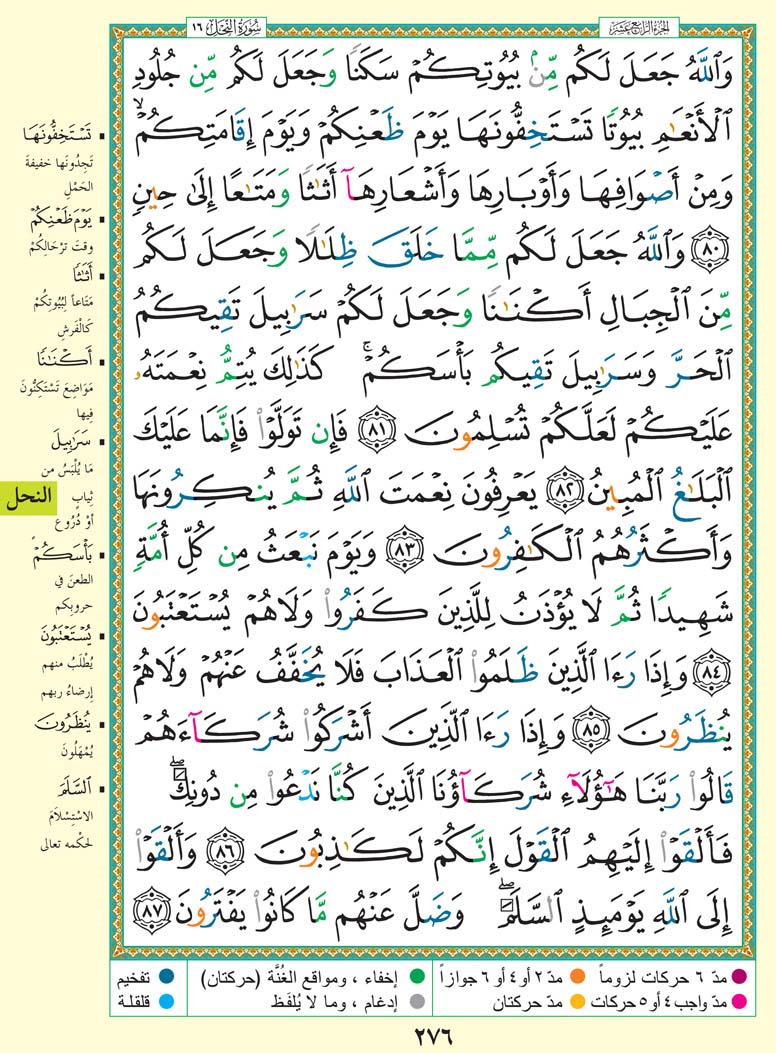 الجزء الرابع عشر
سورة النحل ١٦
وَاللَّهُ جَعَلَ لَكُم مِّنۢ بُيُوتِكُمْ سَكَنًا وَجَعَلَ لَكُم مِّن جُلُودِ
الْأَنْعَٰمِ بُيُوتًا تَسْتَخِفُّونَهَا يَوْمَ ظَعْنِكُمْ وَيَوْمَ إِقَامَتِكُمْ ۙ
وَمِنْ أَصْوَافِهَا وَأَوْبَارِهَا وَأَشْعَارِهَآ أَثَٰثًا وَمَتَٰعًا إِلَىٰ حِينٍ
٨٠ وَاللَّهُ جَعَلَ لَكُم مِّمَّا خَلَقَ ظِلَٰلًا وَجَعَلَ لَكُم
مِّنَ الْجِبَالِ أَكْنَٰنًا وَجَعَلَ لَكُمْ سَرَٰبِيلَ تَقِيكُمُ
الْحَرَّ وَسَرَٰبِيلَ تَقِيكُم بَأْسَكُمْ ۚ كَذَٰلِكَ يُتِمُّ نِعْمَتَهُۥ
عَلَيْكُمْ لَعَلَّكُمْ تُسْلِمُونَ ٨١ فَإِن تَوَلَّوْا۟ فَإِنَّمَا عَلَيْكَ
الْبَلَٰغُ الْمُبِينُ ٨٢ يَعْرِفُونَ نِعْمَتَ اللَّهِ ثُمَّ يُنكِرُونَهَا
وَأَكْثَرُهُمُ الْكَٰفِرُونَ ٨٣ وَيَوْمَ نَبْعَثُ مِن كُلِّ أُمَّةٍ
شَهِيدًا ثُمَّ لَا يُؤْذَنُ لِلَّذِينَ كَفَرُوا۟ وَلَا هُمْ يُسْتَعْتَبُونَ
٨٤ وَإِذَا رَءَا الَّذِينَ ظَلَمُوا۟ الْعَذَابَ فَلَا يُخَفَّفُ عَنْهُمْ وَلَا هُمْ
يُنظَرُونَ ٨٥ وَإِذَا رَءَا الَّذِينَ أَشْرَكُوا۟ شُرَكَآءَهُمْ
قَالُوا۟ رَبَّنَا هَٰٓؤُلَآءِ شُرَكَآؤُنَا الَّذِينَ كُنَّا نَدْعُوا۟ مِن دُونِكَ ۖ
فَأَلْقَوْا۟ إِلَيْهِمُ الْقَوْلَ إِنَّكُمْ لَكَٰذِبُونَ ٨٦ وَأَلْقَوْا۟
إِلَى اللَّهِ يَوْمَئِذٍ السَّلَمَ ۖ وَضَلَّ عَنْهُم مَّا كَانُوا۟ يَفْتَرُونَ ٨٧
تَسْتَخِفُّونَهَا
تَجِدُونَها خفيفةَ
الحَمْلِ
يَوْمَ ظَعْنِكُمْ
وقتَ تَرْحَالِكُمْ
أَثَٰثًا
مَتَاعاً لِبُيُوتِكُمْ
كَالْفَرشِ
أَكْنَٰنًا
مَوَاضِعَ تَسْتَكِنُّونَ
فِيها
سَرَٰبِيلَ
مَا يُلْبَسُ من
ثِيابٍ
أَوْ دُرُوعٍ
بَأْسَكُمْ
الطعنَ في
حروبكم
يُسْتَعْتَبُونَ
يُطْلَبُ منهم
إرضاءُ ربهم
يُنظَرُونَ
يُمْهَلُونَ
السَّلَمَ
الاسْتِسْلاَمَ
لحكمه تعالى
النحل
مدّ ٦ حركات لزوماً
مدّ ٢ أو ٤ أو ٦ جوازاً
إخفاء ، ومواقع الغُنَّة (حركتان)
تفخيم
مدّ واجب ٤ أو ٥ حركات
مدّ حركتان
إدغام ، وما لا يُلفَظ
قلقلة
٢٧٦